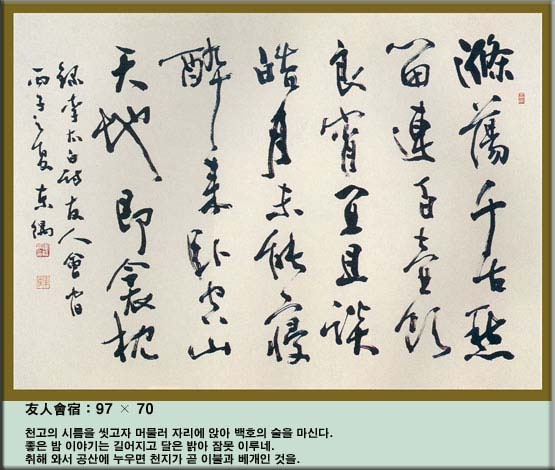 滌蕩千古愁
留連百壺飲
良宵宜且談
皓月未能寢
醉來臥空山
天地即衾枕
錄李太白詩友人會宿
丙子之夏 東
友人會宿 : 97 × 70
천고의 시름을 씻고자 머물러 자리에 앉아 백호의 술을 마신다.
좋은 밤 이야기는 길어지고 달은 밝아 잠못 이루네.
취해 와서 공산에 누우면 천지가 곧 이불과 베개인 것을.